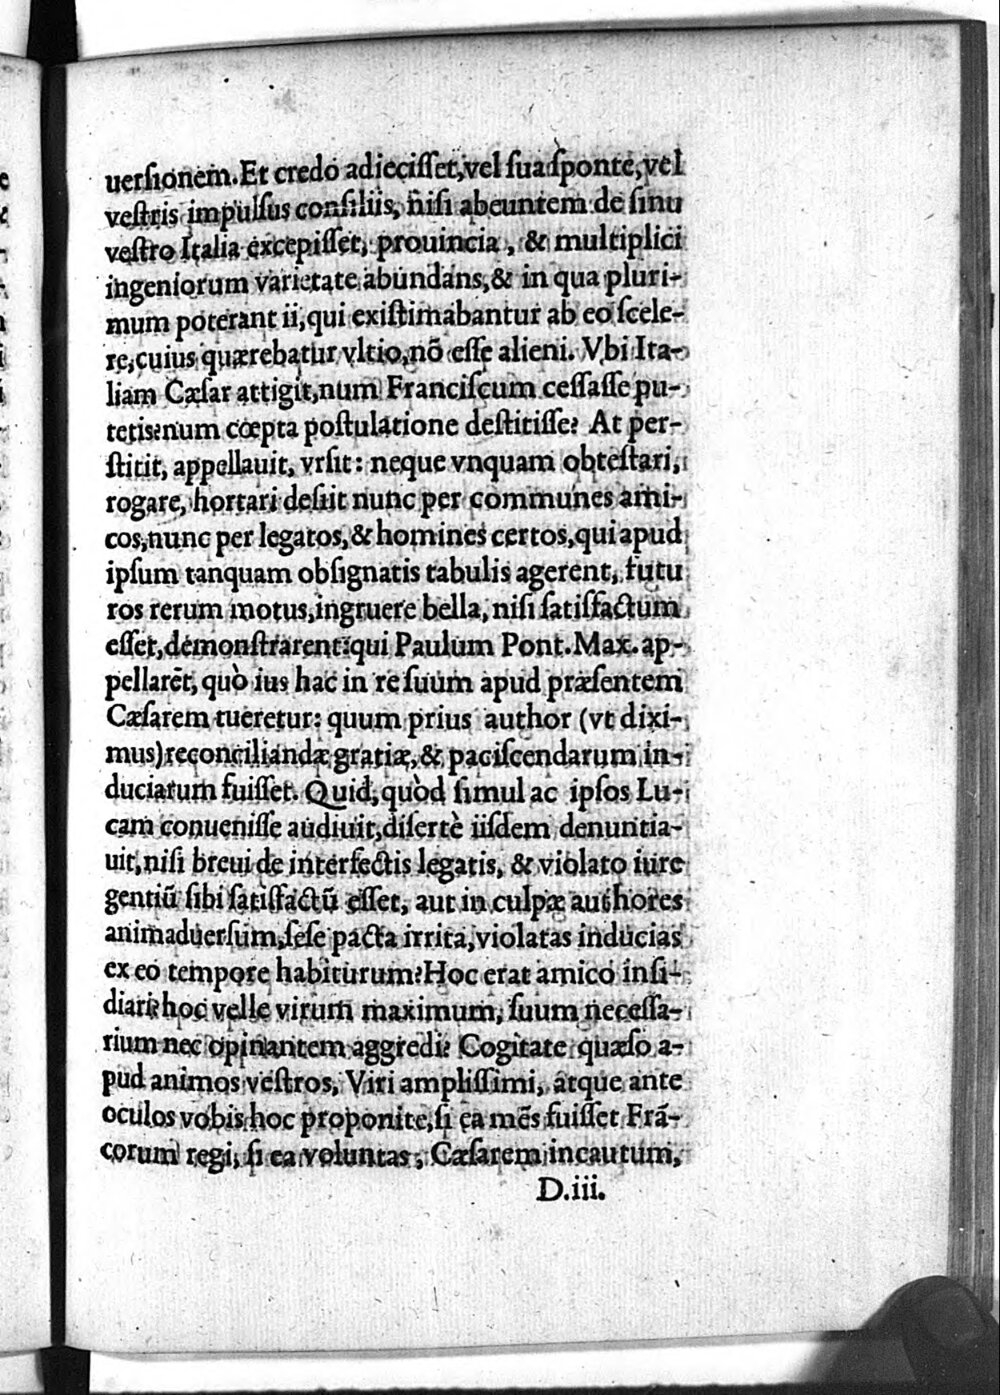 uersionem. Et credo adiecisset, vel sua sponte, vel
vestris impulsus consiliis, nisi abeuntem de sinu
vestro Italia excepisset, prouincia, & multiplici
ingeniorum varietate abundans, & in qua pluri-
mum poterant ii, qui existimabantur ab eo scele-
re, cuius quærebatur vltio, nõ esse alieni. Vbi Ita-
liam Cæsar attigit, num Franciscum cessasse pu-
tetis? num cœpta postulatione destitisse? At per-
stitit, appellauit, vrsit: neque vnquam obtestari,
rogare, hortari desiit nunc per communes ami-
cos, nunc per legatos, & homines certos, qui apud
ipsum tanquam obsignatis tabulis agerent, futu
ros rerum motus, ingruere bella, nisi satisfactum
esset, demonstrarent: qui Paulum Pont. Max. ap-
pellarẽt, quò ius hac in re suum apud præsentem
Cæsarem tueretur: quum prius author (vt dixi-
mus) reconciliandæ gratiæ, & paciscendarum in-
duciarum fuisset. Quid, quòd simul ac ipsos Lu-
cam conuenisse audiuit, disertè iisdem denuntia-
uit, nisi breui de interfectis legatis, & violato iure
gentiũ sibi satisfactũ esset, aut in culpæ authores
animaduersum, sese pacta irrita, violatas inducias
ex eo tempore habiturum? Hoc erat amico insi-
diari? hoc velle virum maximum, suum necessa-
rium nec opinantem aggredi? Cogitate quæso a-
pud animos vestros, Viri amplissimi, atque ante
oculos vobis hoc proponite, si ea mẽs fuisset Frã-
corum regi, si ea voluntas, Cæsarem incautum,
D.iii.